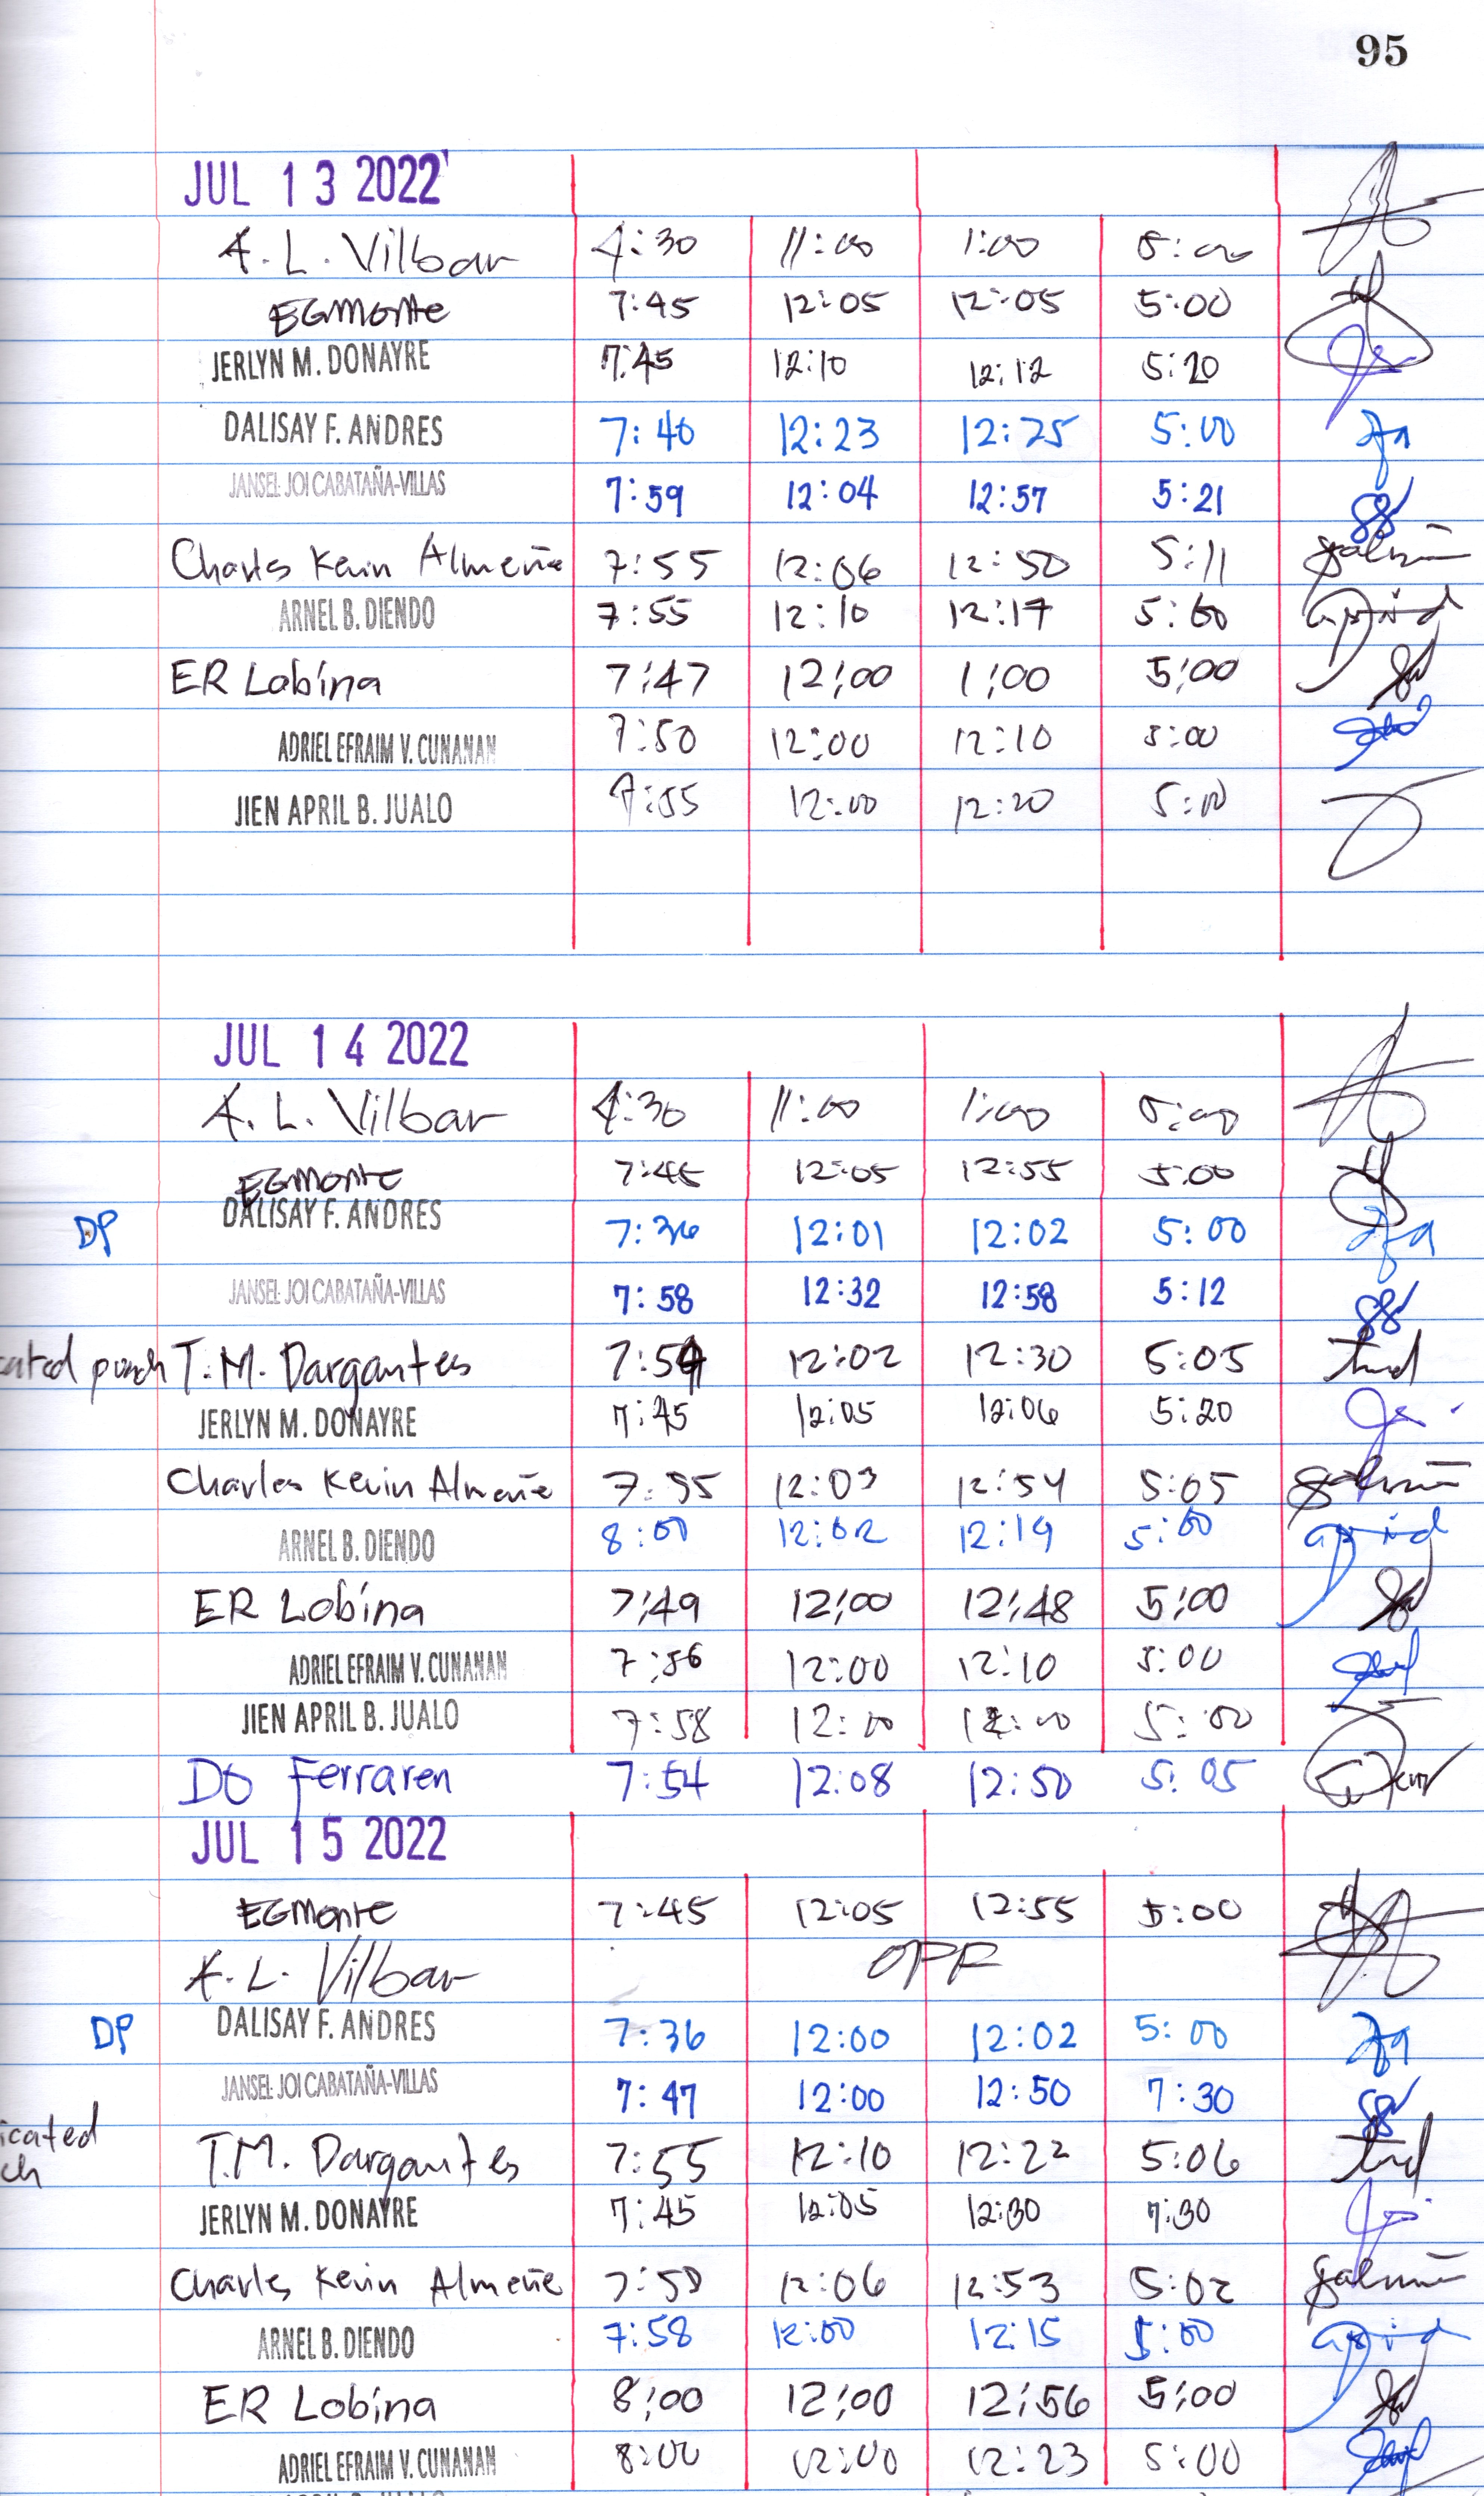 95
JUL 13 2022
A. L. Vilbar 4:30 11:00 1:00 5:00
EGMonte 7:45 12:05 12:05 5:00
JERLYN M. DONAYRE 7:45 12:10 12:12 5:20
DALISAY F. ANDRES 7:40 12:23 12:25 5:00
JANSEL JOI CABATAÑA-VILLAS 7:59 12:04 12:57 5:21
Charles Kevin Almeñe 7:55 12:06 12:50 5:11
ARNEL B. DIENDO 7:55 12:10 12:17 5:00
ER Lobina 7:47 12:00 1:00 5:00
ADRIEL EFRAIM V. CUNANAN 7:50 12:00 12:10 5:00
JIEN APRIL B. JUALO 7:55 12:00 12:20 5:00
JUL 14 2022
A. L. Vilbar 4:30 11:00 1:00 5:00
EGMonte 7:45 12:05 12:55 5:00
DP DALISAY F. ANDRES 7:36 12:01 12:02 5:00
JANSEL JOI CABATAÑA-VILLAS 7:58 12:32 12:58 5:12
cated punch T.M. Dargantes 7:54 12:02 12:30 5:05
JERLYN M. DONAYRE 7:45 12:05 12:06 5:20
Charles Kevin Almeñe 7:55 12:03 12:54 5:05
ARNEL B. DIENDO 8:00 12:02 12:19 5:00
ER Lobina 7:49 12:00 12:48 5:00
ADRIEL EFRAIM V. CUNANAN 7:56 12:00 12:10 5:00
JIEN APRIL B. JUALO 7:58 12:10 12:00 5:00
DO Ferraren 7:54 12:08 12:50 5:05
JUL 15 2022
EGMonte 7:45 12:05 12:55 5:00
A. L. Vilbar OPR
DP DALISAY F. ANDRES 7:36 12:00 12:02 5:00
JANSEL JOI CABATAÑA-VILLAS 7:47 12:00 12:50 7:30
icated
ch T.M. Dargantes 7:55 12:10 12:22 5:06
JERLYN M. DONAYRE 7:45 12:05 12:30 7:30
Charles Kevin Almeñe 7:50 12:06 12:53 5:02
ARNEL B. DIENDO 7:58 12:00 12:15 5:00
ER Lobina 8:00 12:00 12:56 5:00
ADRIEL EFRAIM V. CUNANAN 8:00 12:00 12:23 5:00